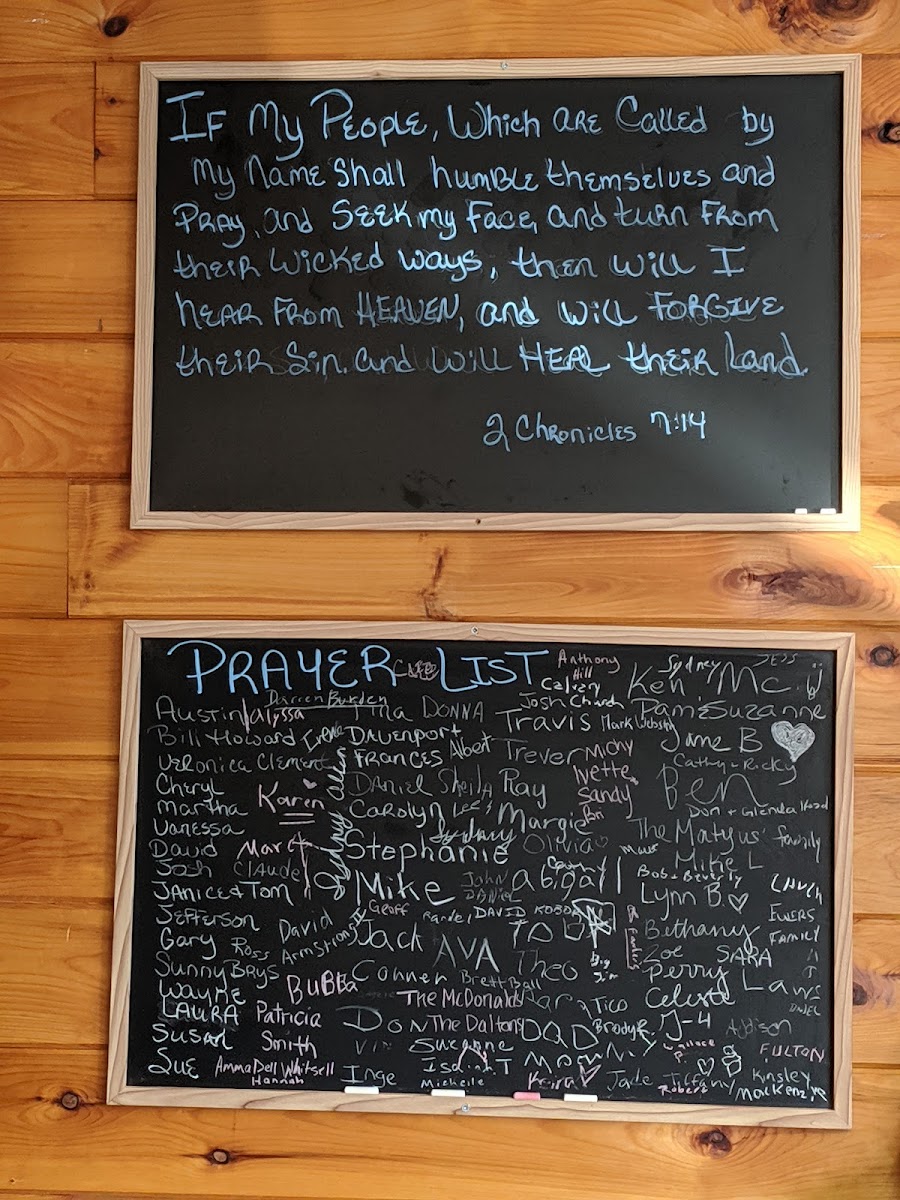 IF My PEOPLE, Which ARE Called by
My NAME Shall humBLE themselves and
PRAY, and SEEK my FACE, and turn From
their Wicked ways, then will I
hEAR From HEAVEN, and will FORGIVE
their Sin. and will HEAL their Land.
2 Chronicles 7:14
PRAYER LIST
Anthony
Hill
Calvary
Church
Sydney
JESS
Ken Mc
Darren Burden
Austin
alyssa
Tina DONNA
Josh
Travis
Mark Webster
Pam
Suzanne
Bill Howard
Irene
DAVENPORT
Jane B
Veronica Clement
FRANCES
Albert
Trever
Micky
Cathy + Ricky
Cheryl
Sydney Allen
DANIEL
Sheila
Ray
Yvette
Sandy
Jon
Ben
Martha
Karen
Carolyn
Lee
Margie
Don + Glenda Hood
Vanessa
Sydney
The Matyus' family
David
Marc
Stephanie
Olivia
Mike L
Josh
Claude
John
Daniel
abigail
Bob + Beverly
JANICE & TOM
Mike
Lynn B.
EWERS
FAMILY
Jefferson
David
Armstrong
Geoff
DAVID
Bethany
Gary
Ross
Jack
AVA
Theo
Big
Jim
Zoe
SARA
Sunny Brys
BUBBa
Conner
Brett Ball
Perry
Laws
WAYNE
The McDonalds
Tico
Celeste
LAURA
Patricia
Smith
Don
The Daltons
DAD
Brady R.
J-4
Addison
Susan
Suzanne
Mommy
Wallace
P.
FULTON
Sue
AmmaDell Whitsell
Hannah
Inge
Isaiah T
Michelle
Keira
Jade
Tiffany
Robert
Kinsley
Mackenzie